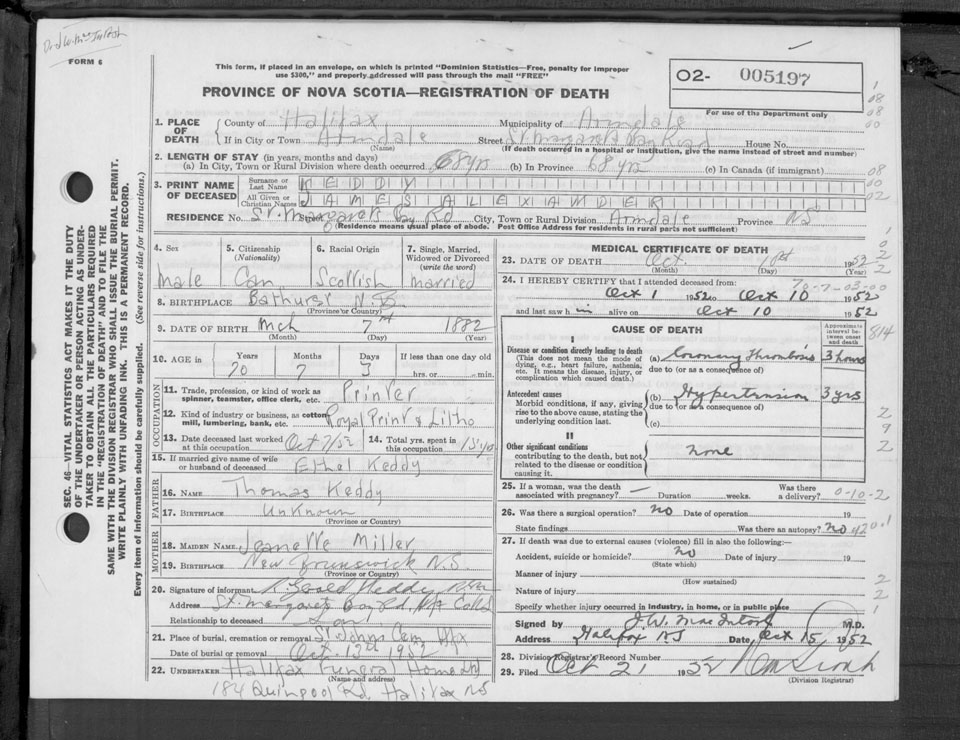 FORM 6
This form, if placed in an envelope, on which is printed "Dominion Statistics—Free, penalty for improper
use $300," and properly addressed will pass through the mail "FREE"
PROVINCE OF NOVA SCOTIA—REGISTRATION OF DEATH
O2- 005197
For use of the Department only
1. PLACE OF DEATH
County of Halifax Municipality of Armdale
If in City or Town Armdale Street St. Margarets Bay Road House No.
(Name) (If death occurred in a hospital or institution, give the name instead of street and number)
2. LENGTH OF STAY (in years, months and days)
(a) In City, Town or Rural Division where death occurred 68 yrs (b) In Province 68 yrs (c) In Canada (if immigrant)
3. PRINT NAME OF DECEASED
Surname or Last Name KEDDY
All Given or Christian Names JAMES ALEXANDER
RESIDENCE No. St. Margarets Bay Rd City, Town or Rural Division Armdale Province NS
(Residence means usual place of abode. Post Office Address for residents in rural parts not sufficient)
4. Sex
male
5. Citizenship (Nationality)
Can
6. Racial Origin
Scottish
7. Single, Married, Widowed or Divorced (write the word)
married
8. BIRTHPLACE Bathurst N.B
(Province or Country)
9. DATE OF BIRTH Mch 7th 1882
(Month) (Day) (Year)
10. AGE in Years Months Days If less than one day old
70 7 3 hrs. or min.
OCCUPATION
11. Trade, profession, or kind of work as spinner, teamster, office clerk, etc. Printer
12. Kind of industry or business, as cotton mill, lumbering, bank, etc. Royal Print & Litho
13. Date deceased last worked at this occupation Oct 7/52
14. Total yrs. spent in this occupation 15 yrs
15. If married give name of wife or husband of deceased Ethel Keddy
FATHER
16. NAME Thomas Keddy
17. BIRTHPLACE Unknown
(Province or Country)
MOTHER
18. MAIDEN NAME Jeanette Miller
19. BIRTHPLACE New Brunswick N.S
(Province or Country)
20. Signature of informant Gerald Keddy
Address St. Margarets Bay Rd,
Relationship to deceased Son
21. Place of burial, cremation or removal St Johns Cem Hfx
Date of burial or removal Oct. 13th 1952
22. UNDERTAKER Halifax Funeral Home Ltd
(Name and address)
184 Quinpool Rd. Halifax NS
MEDICAL CERTIFICATE OF DEATH
23. DATE OF DEATH Oct. 10th 1952
(Month) (Day) (Year)
24. I HEREBY CERTIFY that I attended deceased from:
70-7-03-00
Oct 1 1952 to Oct 10 1952
and last saw him alive on Oct 10 1952
CAUSE OF DEATH
Approximate interval between onset and death
I
Disease or condition directly leading to death
(This does not mean the mode of dying, e.g., heart failure, asthenia, etc. It means the disease, injury, or complication which caused death.)
(a) Coronary Thrombosis 3 hours
due to (or as a consequence of)
814
Antecedent causes
Morbid conditions, if any, giving rise to the above cause, stating the underlying condition last.
(b) Hypertension 3 yrs
due to (or as a consequence of)
(c)
II
Other significant conditions
contributing to the death, but not related to the disease or condition causing it.
none
25. If a woman, was the death associated with pregnancy? — Duration weeks. Was there a delivery? 0-10-2
26. Was there a surgical operation? No Date of operation 19
State findings Was there an autopsy? No 420.1
27. If death was due to external causes (violence) fill in also the following:—
Accident, suicide or homicide? no Date of injury 19
(State which)
Manner of injury
(How sustained)
Nature of injury
Specify whether injury occurred in industry, in home, or in public place
Signed by J.W. MacIntosh M.D.
Address Halifax NS Date, Oct 15 1952
28. Division Registrar's Record Number
29. Filed Oct 21 1952
(Division Registrar)
SEC. 46—VITAL STATISTICS ACT MAKES IT THE DUTY
OF THE UNDERTAKER OR PERSON ACTING AS UNDER-
TAKER TO OBTAIN ALL THE PARTICULARS REQUIRED
IN THE "REGISTRATION OF DEATH" AND TO FILE THE
SAME WITH THE DIVISION REGISTRAR WHO SHALL ISSUE THE BURIAL PERMIT.
WRITE PLAINLY WITH UNFADING INK. THIS IS A PERMANENT RECORD.
Every item of information should be carefully supplied. (See reverse side for instructions.)